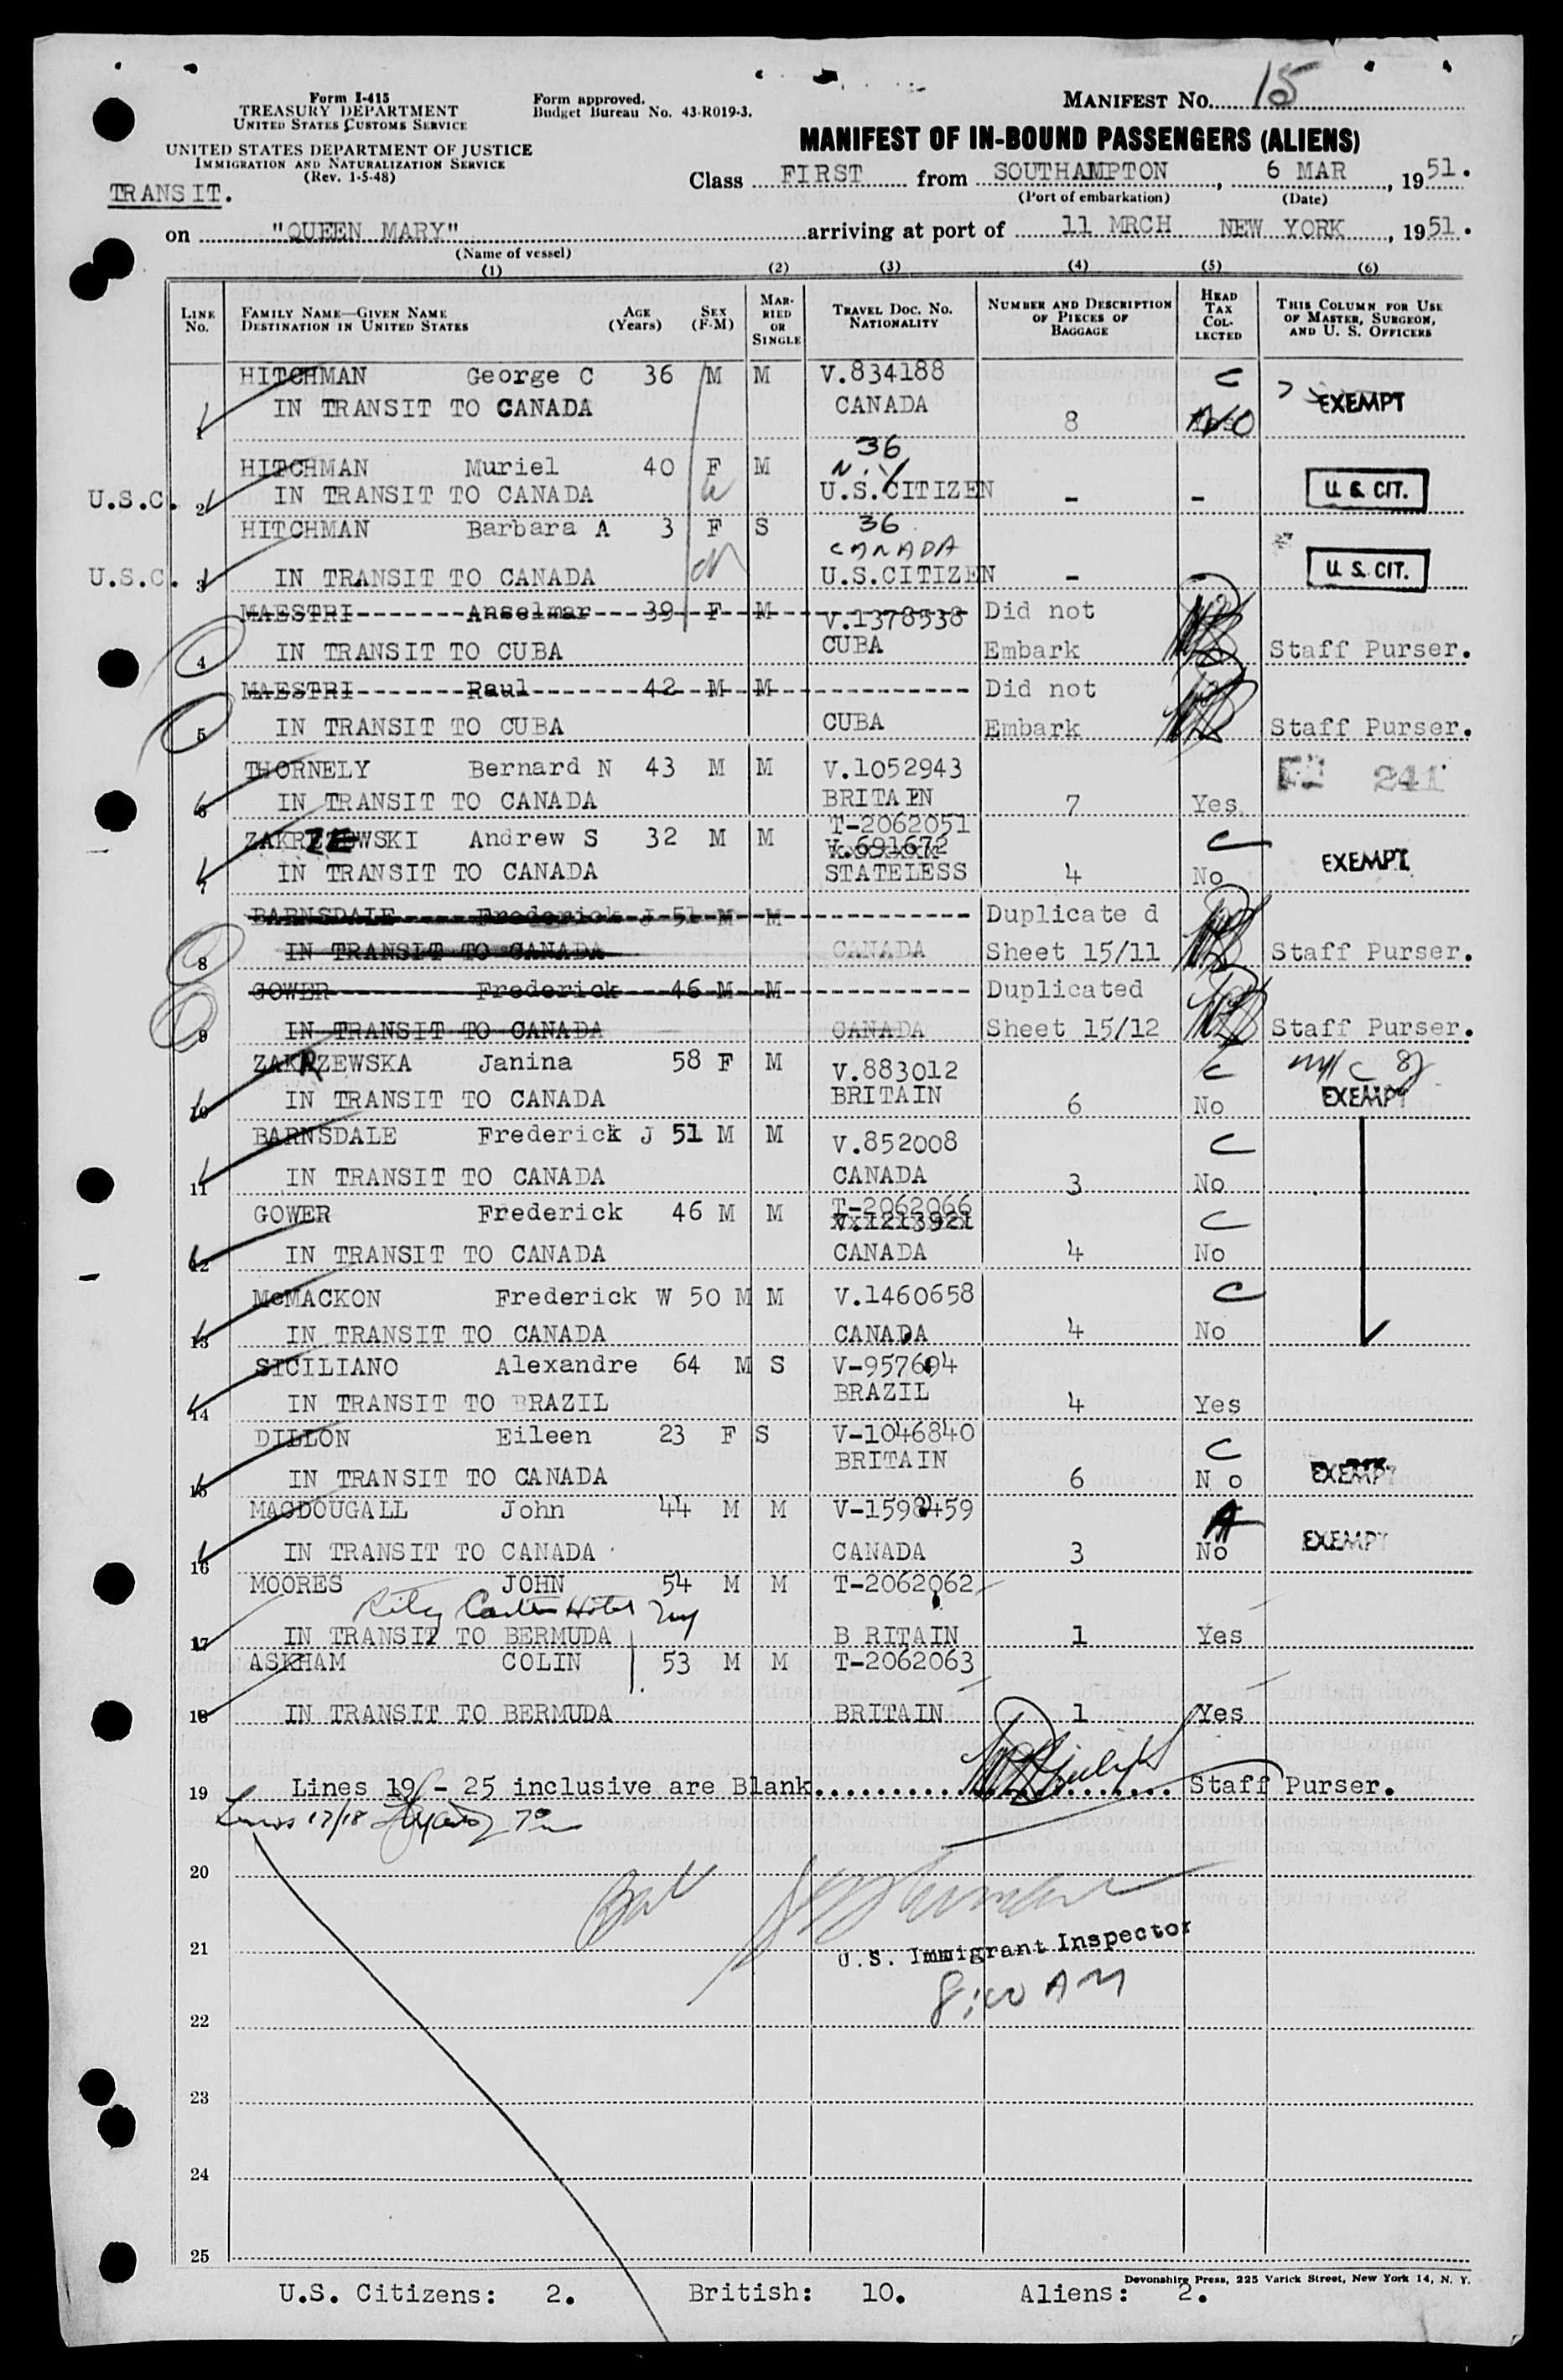 Form I-415
TREASURY DEPARTMENT
UNITED STATES CUSTOMS SERVICE
UNITED STATES DEPARTMENT OF JUSTICE
IMMIGRATION AND NATURALIZATION SERVICE
(Rev. 1-5-48)
TRANSIT.
Form approved.
Budget Bureau No. 43-R019-3.
MANIFEST NO. 15
MANIFEST OF IN-BOUND PASSENGERS (ALIENS)
Class FIRST from SOUTHAMPTON, 6 MAR, 1951.
(Port of embarkation) (Date)
on "QUEEN MARY" arriving at port of 11 MRCH NEW YORK, 1951.
(Name of vessel)
(1) (2) (3) (4) (5) (6)
LINE No. FAMILY NAME—GIVEN NAME DESTINATION IN UNITED STATES AGE (Years) SEX (F-M) MARRIED OR SINGLE TRAVEL DOC. NO. NATIONALITY NUMBER AND DESCRIPTION OF PIECES OF BAGGAGE HEAD TAX COLLECTED THIS COLUMN FOR USE OF MASTER, SURGEON, AND U. S. OFFICERS
HITCHMAN George C 36 M M V.834188 C
1 IN TRANSIT TO CANADA CANADA 8 NO EXEMPT
36
HITCHMAN Muriel 40 F M N.Y
U.S.C. 2 IN TRANSIT TO CANADA U.S.CITIZEN - - U. S. CIT.
HITCHMAN Barbara A 3 F S 36
CANADA
U.S.C. 3 IN TRANSIT TO CANADA U.S.CITIZEN - U. S. CIT.
MAESTRI Anselmar 39 F M V.1378538 Did not
4 IN TRANSIT TO CUBA CUBA Embark Staff Purser.
MAESTRI Raul 42 M M Did not
5 IN TRANSIT TO CUBA CUBA Embark Staff Purser.
THORNELY Bernard N 43 M M V.1052943 241
6 IN TRANSIT TO CANADA BRITAIN 7 Yes
T-2062051
ZAKRZEWSKI Andrew S 32 M M V.691672 C
7 IN TRANSIT TO CANADA STATELESS 4 No EXEMPT
BARNSDALE Frederick J 51 M M Duplicate d
8 IN TRANSIT TO CANADA CANADA Sheet 15/11 Staff Purser.
GOWER Frederick 46 M M Duplicated
9 IN TRANSIT TO CANADA CANADA Sheet 15/12 Staff Purser.
ZAKRZEWSKA Janina 58 F M V.883012 C
10 IN TRANSIT TO CANADA BRITAIN 6 No EXEMPT
BARNSDALE Frederick J 51 M M V.852008 C
11 IN TRANSIT TO CANADA CANADA 3 No
T-2062066
GOWER Frederick 46 M M V.1213921 C
12 IN TRANSIT TO CANADA CANADA 4 No
McMACKON Frederick W 50 M M V.1460658 C
13 IN TRANSIT TO CANADA CANADA 4 No
SICILIANO Alexandre 64 M S V-957694
14 IN TRANSIT TO BRAZIL BRAZIL 4 Yes
DILLON Eileen 23 F S V-1046840 C
15 IN TRANSIT TO CANADA BRITAIN 6 N o EXEMPT
MACDOUGALL John 44 M M V-1598459 A
16 IN TRANSIT TO CANADA CANADA 3 No EXEMPT
MOORES JOHN 54 M M T-2062062
Ritz Carlton Hotel NY
17 IN TRANSIT TO BERMUDA B RITAIN 1 Yes
ASKHAM COLIN 53 M M T-2062063
18 IN TRANSIT TO BERMUDA BRITAIN 1 Yes
19 Lines 19 - 25 inclusive are Blank. Staff Purser.
Lines 17/18
20
21
U.S. Immigrant Inspector
22
23
24
25
Devonshire Press, 225 Varick Street, New York 14, N. Y.
U.S. Citizens: 2. British: 10. Aliens: 2.